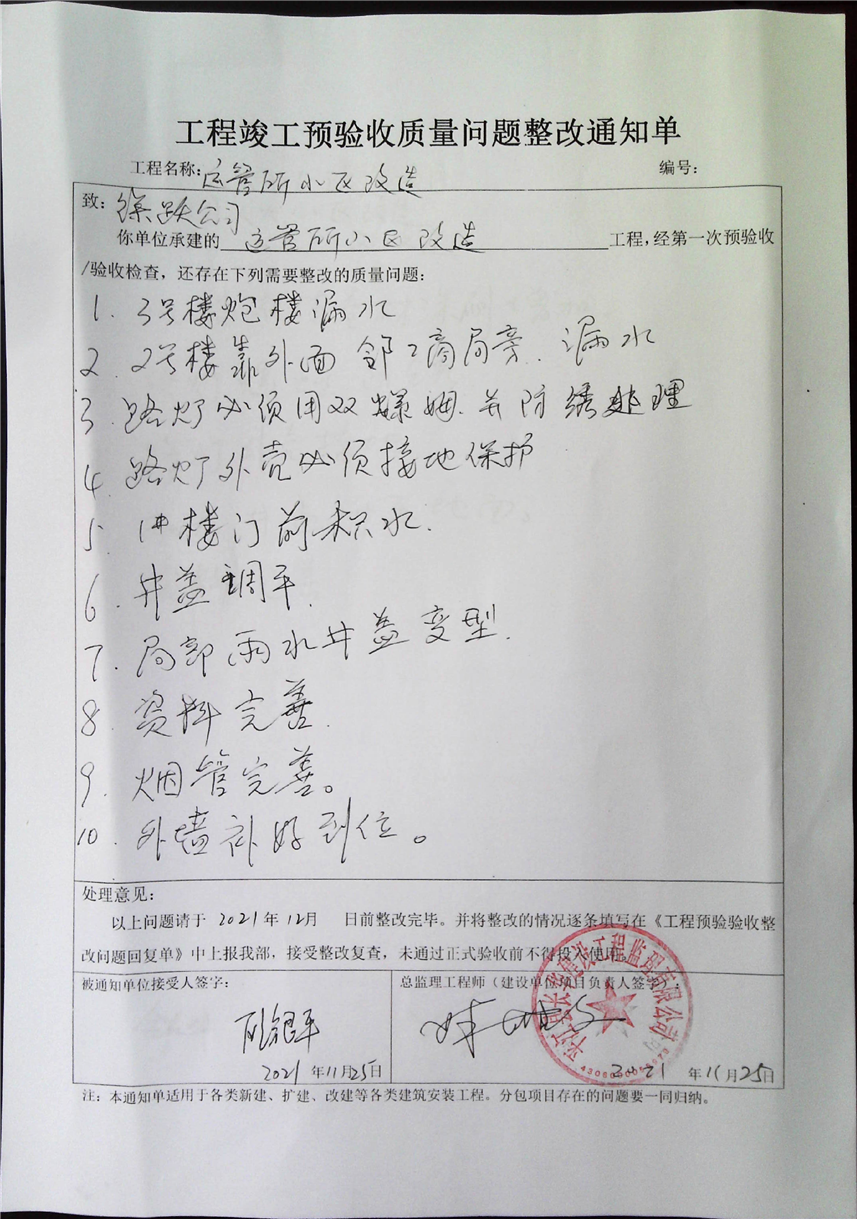 工程竣工预验收质量问题整改通知单
工程名称：运管所小区改造 编号：
致：跃公司
你单位承建的 运管所小区改造 工程，经第一次预验收
/验收检查，还存在下列需要整改的质量问题：
1. 3号楼炮楼漏水
2. 2号楼靠外面邻工商局旁.漏水
3 路灯必须用双螺姆.并防绣处理
4. 路灯外壳必须接地保护
5. 1#楼门前积水.
6. 井盖调平.
7. 局部雨水井盖变型.
8. 资料完善.
9. 烟管完善。
10. 外墙补好到位。
处理意见：
以上问题请于 2021年12月 日前整改完毕。并将整改的情况逐条填写在《工程预验验收整
改问题回复单》中上报我部，接受整改复查，未通过正式验收前不得投入使用。
被通知单位接受人签字： 总监理工程师（建设单位项目负责人签字）：
建设工程监理有限公司
2021年11月25日 2021年11月25日
注：本通知单适用于各类新建、扩建、改建等各类建筑安装工程。分包项目存在的问题要一同归纳。